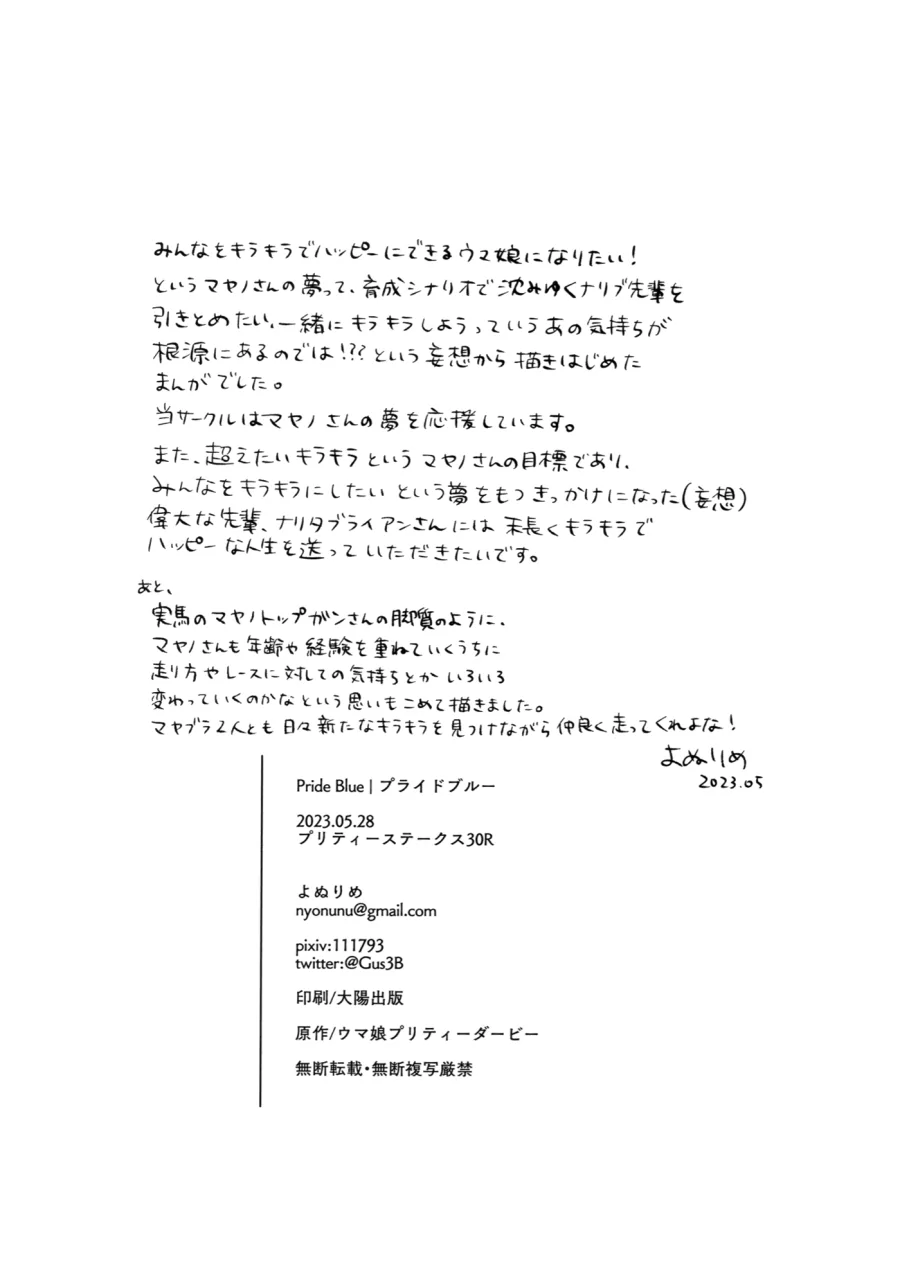 みんなをキラキラでハッピーにできるウマ娘になりたい!
というマヤノさんの夢って、育成シナリオで沈みゆくナリブ先輩を
引きとめたい、一緒にキラキラしようっていうあの気持ちが
根源にあるのでは!??という妄想から描きはじめた
まんがでした。
当サークルはマヤノさんの夢を応援しています。
また、超えたいキラキラというマヤノさんの目標であり、
みんなをキラキラにしたいという夢をもつきっかけになった(妄想)
偉大な先輩、ナリタブライアンさんには末長くキラキラで
ハッピーな人生を送っていただきたいです。
あと、
実馬のマヤノトップガンさんの脚質のように、
マヤノさんも年齢や経験を重ねていくうちに
走り方やレースに対しての気持ちとかいろいろ
変わっていくのかなという思いもこめて描きました。
マヤブラ2人とも日々新たなキラキラを見つけながら仲良く走ってくれよな!
よぬりめ
2023.05
Pride Blue | プライドブルー
2023.05.28
プリティーステークス30R
よぬりめ
nyonunu@gmail.com
pixiv:111793
twitter:@Gus3B
印刷/大陽出版
原作/ウマ娘プリティーダービー
無断転載・無断複写厳禁